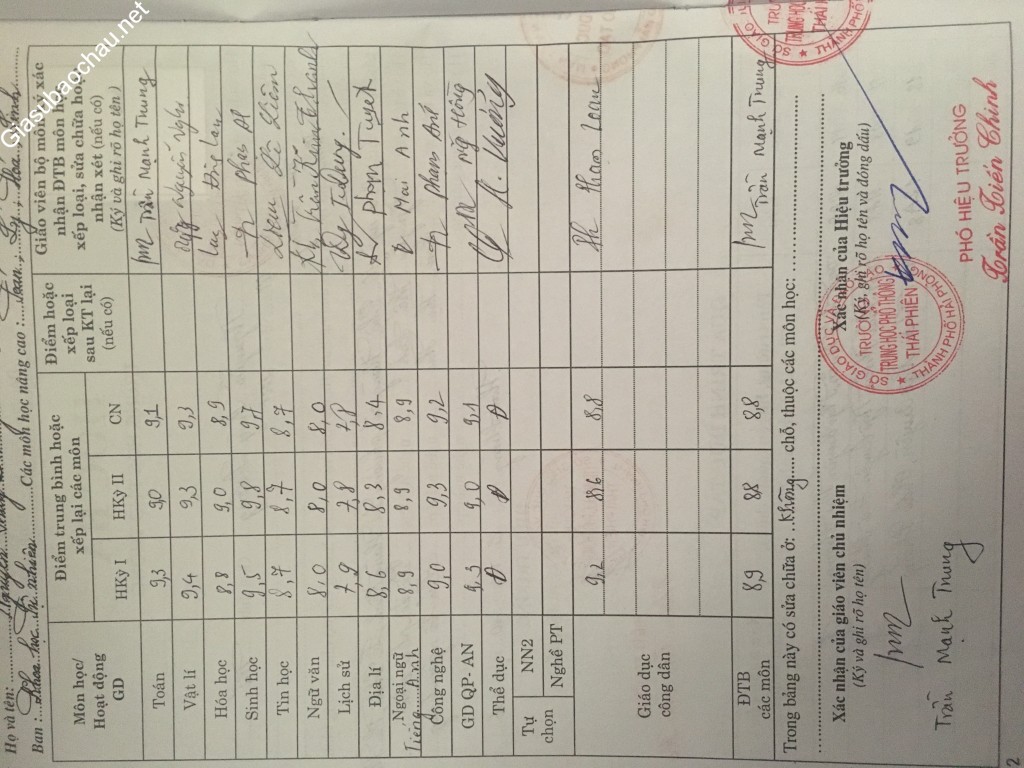 Giasubaochau.net
Họ và tên: Nguyễn
Ban : Khoa học Tự nhiên Các môn học nâng cao : Toán, Lý, Hóa, Sinh
Môn học/ Hoạt động GD
Điểm trung bình hoặc xếp lại các môn
HKỳ I HKỳ II CN
Điểm hoặc xếp loại sau KT lại (nếu có)
Giáo viên bộ môn ký xác nhận ĐTB môn học, xếp loại, sửa chữa hoặc nhận xét (nếu có)
(Ký và ghi rõ họ tên)
Toán 9,3 9,0 9,1 Trần Mạnh Trung
Vật lí 9,4 9,3 9,3
Hóa học 8,8 9,0 8,9
Sinh học 9,5 9,8 9,7
Tin học 8,7 8,7 8,7
Ngữ văn 8,0 8,0 8,0
Lịch sử 7,9 7,8 7,8
Địa lí 8,6 8,3 8,4 Phạm Tuyết
Ngoại ngữ Tiếng Anh 8,9 8,9 8,9 Mai Anh
Công nghệ 9,0 9,3 9,2
GD QP- AN 9,3 9,0 9,1
Thể dục Đ Đ Đ
Tự chọn NN2
Nghề PT
Giáo dục công dân 9,2 8,6 8,8 Phan Loan
ĐTB các môn 8,9 8,8 8,8 Trần Mạnh Trung
Trong bảng này có sửa chữa ở: Không chỗ, thuộc các môn học:
Xác nhận của giáo viên chủ nhiệm
(Ký và ghi rõ họ tên)
Trần Mạnh Trung
Xác nhận của Hiệu trưởng
(Ký, ghi rõ họ tên và đóng dấu)
SỞ GIÁO DỤC VÀ ĐÀO TẠO
TRƯỜNG
TRUNG HỌC PHỔ THÔNG
THÁI PHIÊN
THÀNH PHỐ HẢI PHÒNG
PHÓ HIỆU TRƯỞNG
Trần Tiến Chinh
2